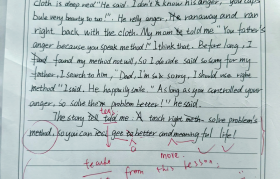 cloth is deep red" He said. I don't know his anger, "you cups
bule very beauty to me!". He relly anger. He ranaway and ran
right back with the cloth. My mom told me "You father's
anger because you speak method" I think that. Before long, I
found my method not will, so I decide said so sorry for my
father. I search to him, "Dad, I'm so sorry. I should use right
method" I said. He happily smile. "As long as you controlled your
anger, so solve the problem better!" he said.
The story tell me. A tach right solve problem's
method, so you can get better and meaning ful life!
teach
more
from this lesson